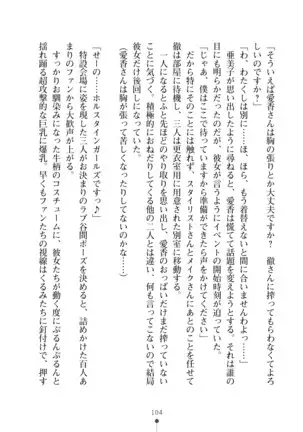 「そういえば愛香さんは胸の張りとか大丈夫ですか？　徹さんに搾ってもらわなくてよろ
しいのですか？」
「わ、わたくしは別に……。ほ、ほら、もう着替えないと間に合いませんわよっ」
亜美子が思い出したように尋ねると、愛香は慌てて話題を変えようとする。しかし誰の
目にもごまかそうとするのは明らかだったが、彼女が言うようにイベントの開始時刻が迫っていた。
だから特にそれ以上は触れず、スタイリストさんとメイクさんにあとのことを任せて
「じゃあ、僕はこっちの部屋にいますから準備ができたら声をかけてください」
徹は部屋に待機し、三人は更衣室用に用意された別室に移動する。
一人になるとふと先ほどのやり取りを思い出し、愛香だけまだ搾っていなかった
ことに気づく。積極的におねだりしてくる他の二人とは違い、何も言ってこないので結局
彼女だけ後回しになってしまった。
（愛香さんは胸が張って苦しくなったりしてないのかなぁ……）
「せーの……ホルスタインガールズですっ♪」
特設会場に姿を現した三人が決めポーズをラブ谷間ポーズを決めると、詰めかけた百人あ
まりのファンから大歓声が上がる。
すっかりお馴染みになった牛柄のコスチュームに、彼女たちが動く度にぷるんぷるんと
揺れ踊る超攻撃的な巨乳に爆乳。早くもファンたちの視線はくるみたちに釘付けで、押す
104